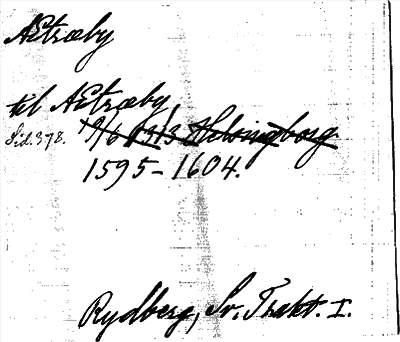 Åstræby
til Åstræby
Sid. 378. 19/6 1313 Helsingborg
1595-1604.
Rydberg, Sv. Trakt. I.